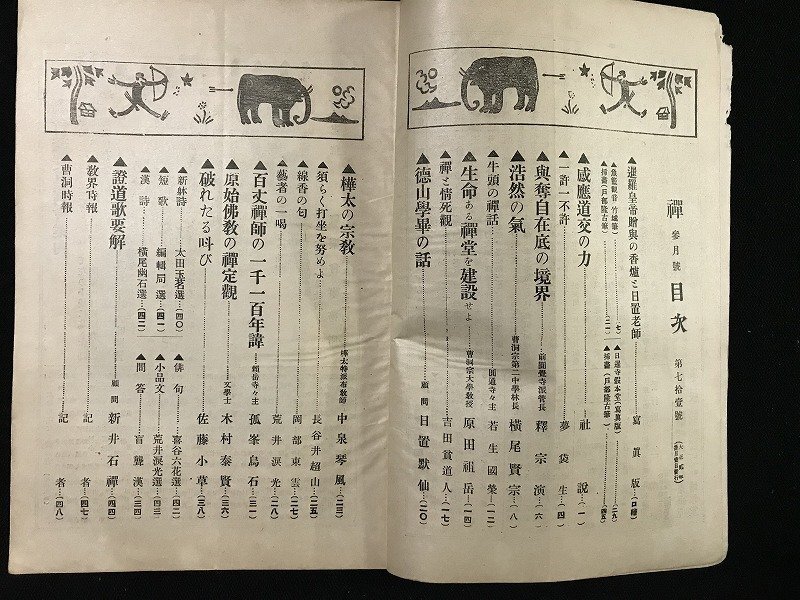 禪 參月號 目次 第七拾壹號
▲暹羅皇帝贈與の香爐と日置老師…寫眞版…(口繪)
▲魚籃觀音(竹城筆)…(七) ▲日暹寺假本堂(寫眞版)…(一九)
▲插畫(戸部隆古筆)…(二一) ▲插畫(戸部隆古筆)…(四五)
▲感應道交の力…社説…(一)
▲一許一不許…夢袋生…(四)
▲與奪自在底の境界…前圓覺寺派管長 釋宗演…(六)
▲浩然の氣…曹洞宗第二中學林長 横尾賢宗…(八)
▲牛頭の禪話…圓通寺々主 若生國榮…(一二)
▲生命ある禪堂を建設せよ…曹洞宗大學教授 原田祖岳…(一四)
▲禪と情死觀…吉田貫道人…(一七)
▲德山學畢の話…顧問 日置默仙…(二〇)
▲樺太の宗教…樺太特派布教師 中泉琴風…(二三)
▲須らく打坐を努めよ…長谷井超山…(二五)
▲線香の匂…岡部東雲…(二七)
▲藝者の一喝…荒井涙光…(二八)
▲百丈禪師の一千一百年諱…顏岳寺々主 孤峯烏石…(三一)
▲原始佛教の禪定觀…文學士 木村泰賢…(三六)
▲破れたる叫び…佐藤小草…(三八)
▲新躰詩…太田玉茗選…(四〇) ▲俳句…喜谷六花選…(四二)
▲短歌…編輯局選…(四一) ▲小品文…荒井涙光選…(四三)
▲漢詩…横尾幽石選…(四二) ▲問答…盲聾漢…(三四)
▲證道歌要解…顧問 新井石禪…(四四)
▲教界時報…記者…(四七)
▲曹洞時報…記者…(四八)